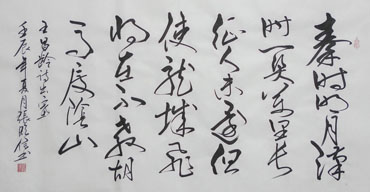 秦时明月漢
时关万里长
征人未還但
使龍城飛
将在不教胡
马度陰山
王昌龄诗出塞
壬辰年夏月張书